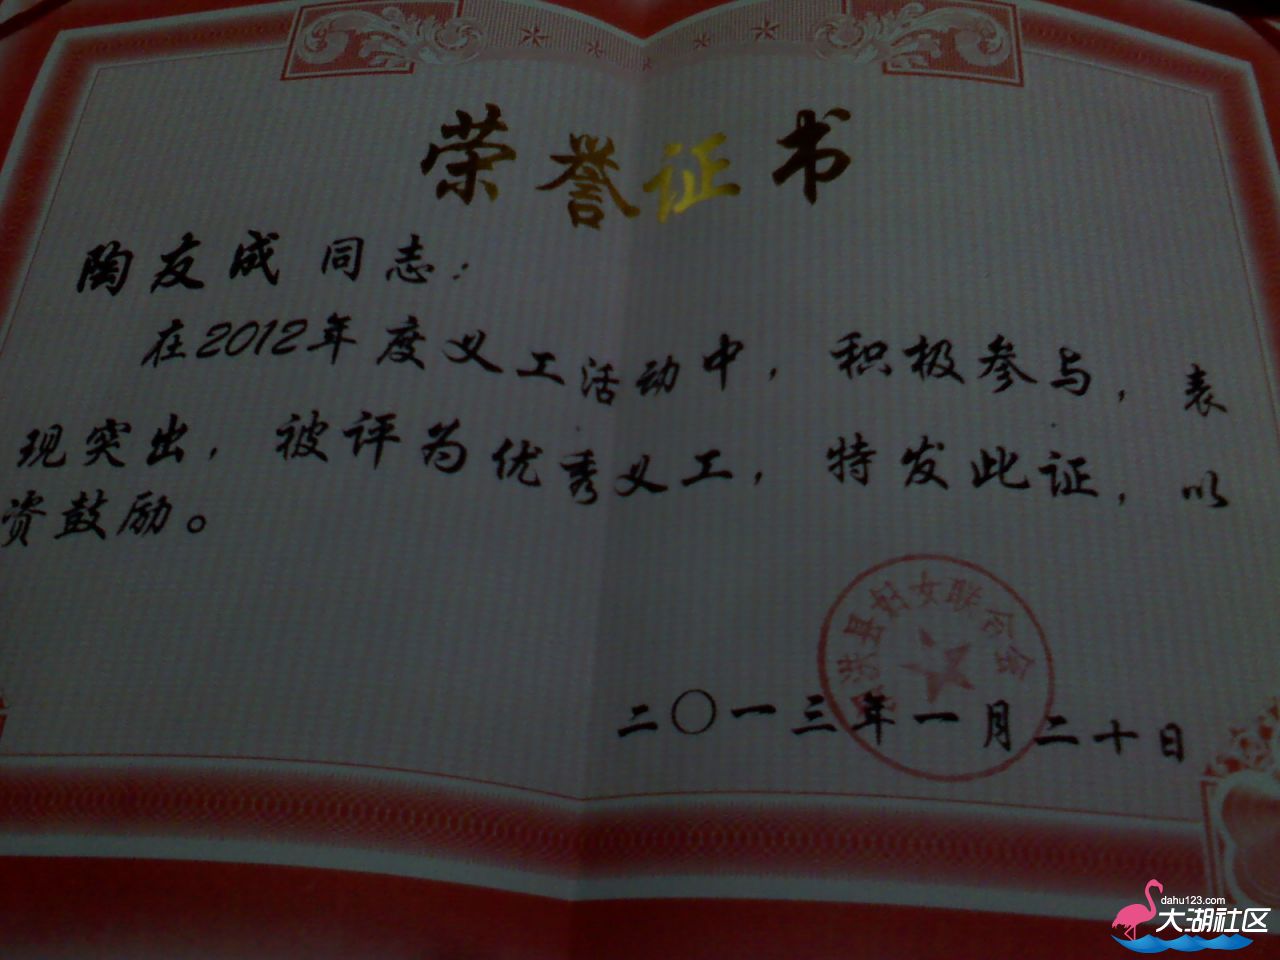 荣誉证书
陶友成同志：
在2012年度义工活动中，积极参与，表
现突出，被评为优秀义工，特发此证，以
资鼓励。
洪县妇女联合会
二〇一三年一月二十日
dahu123.com
大湖社区